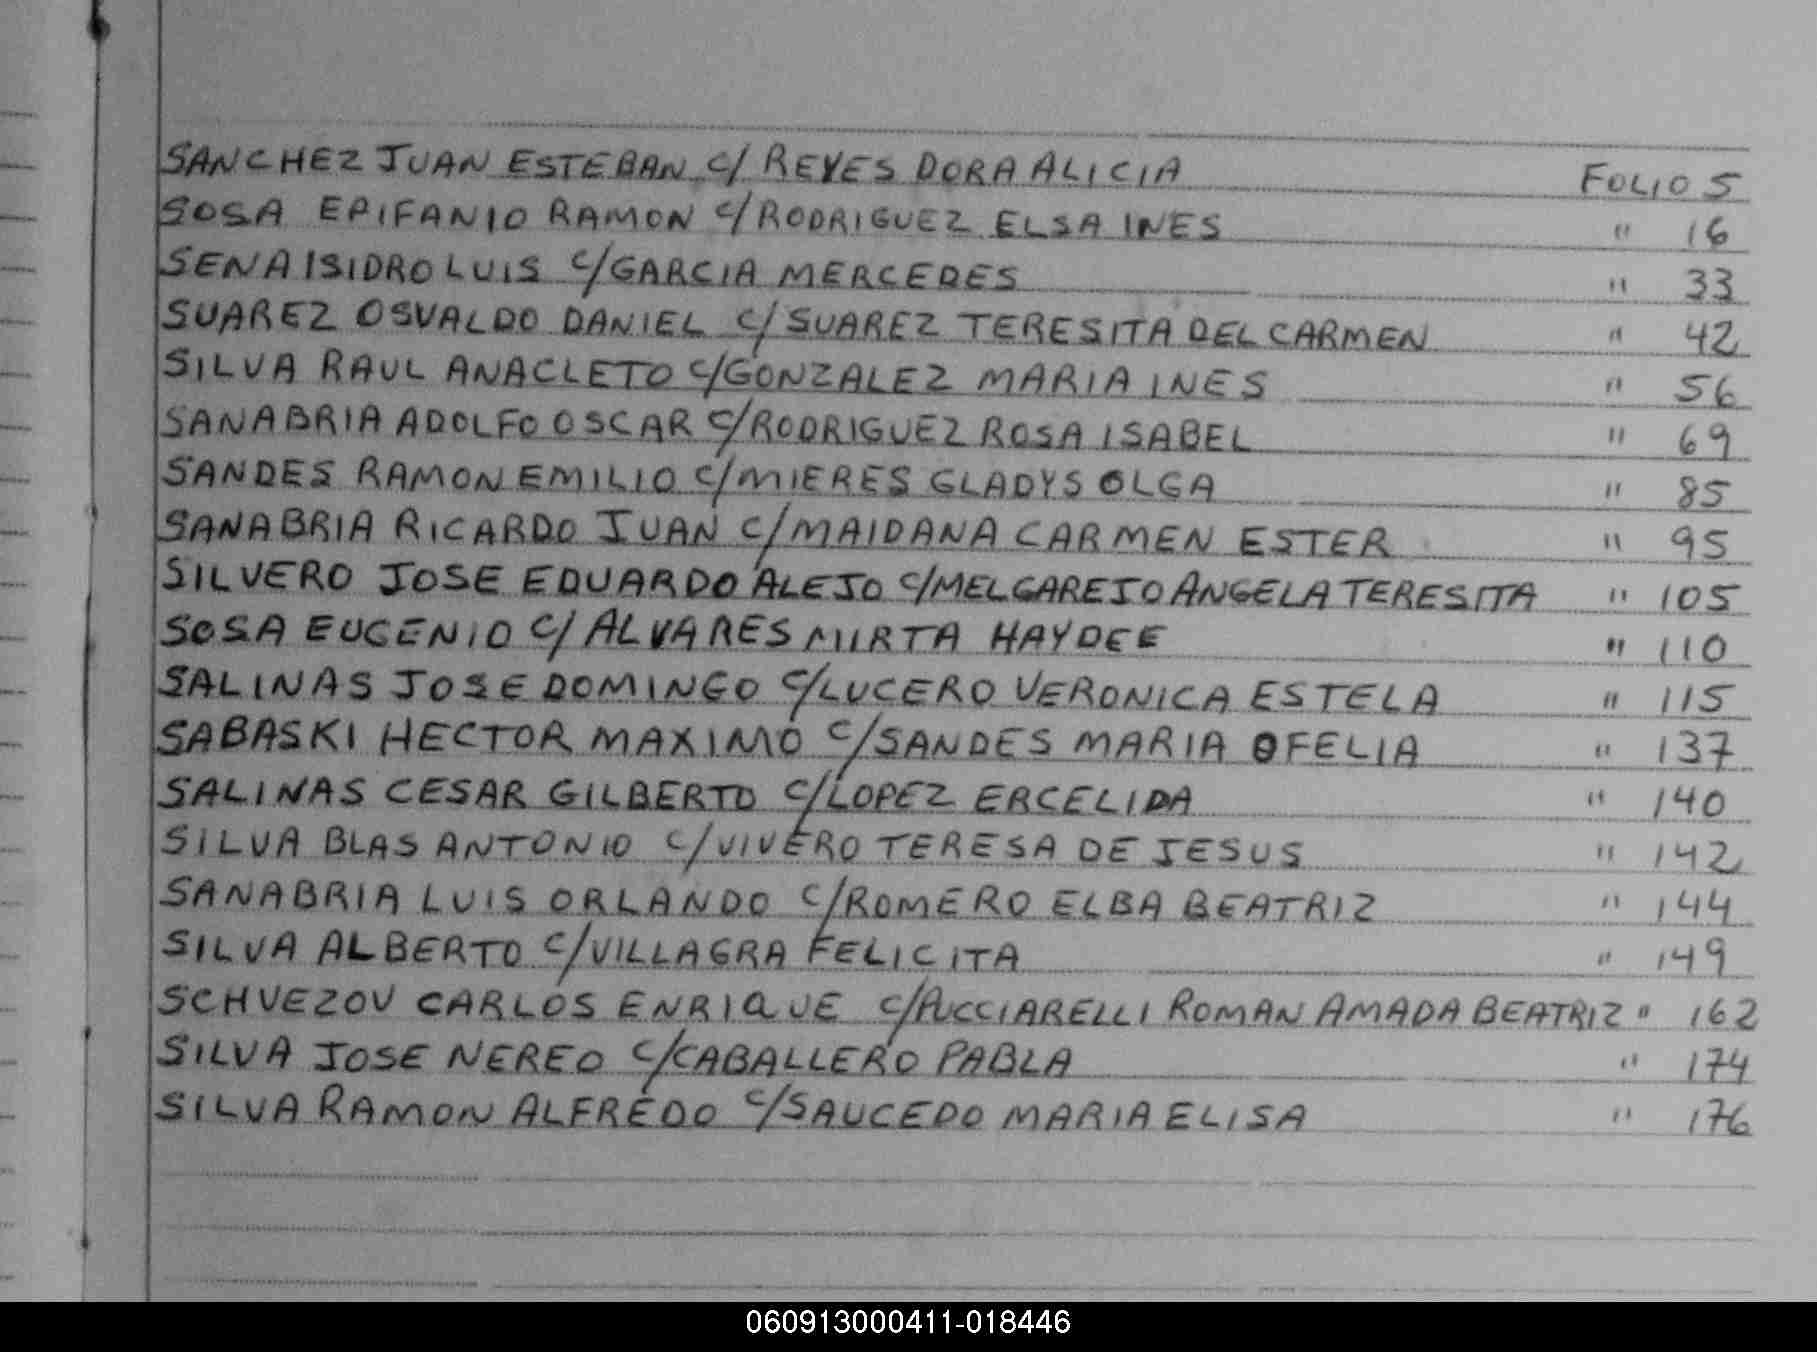 SANCHEZ JUAN ESTEBAN c/ REYES DORA ALICIA FOLIO 5
SOSA EPIFANIO RAMON c/ RODRIGUEZ ELSA INES " 16
SENA ISIDRO LUIS c/ GARCIA MERCEDES " 33
SUAREZ OSVALDO DANIEL c/ SUAREZ TERESITA DEL CARMEN " 42
SILVA RAUL ANACLETO c/ GONZALEZ MARIA INES " 56
SANABRIA ADOLFO OSCAR c/ RODRIGUEZ ROSA ISABEL " 69
SANDES RAMON EMILIO c/ MIERES GLADYS OLGA " 85
SANABRIA RICARDO JUAN c/ MAIDANA CARMEN ESTER " 95
SILVERO JOSE EDUARDO ALEJO c/ MELGAREJO ANGELA TERESITA " 105
SOSA EUGENIO c/ ALVARES MIRTA HAYDEE " 110
SALINAS JOSE DOMINGO c/ LUCERO VERONICA ESTELA " 115
SABASKI HECTOR MAXIMO c/ SANDES MARIA OFELIA " 137
SALINAS CESAR GILBERTO c/ LOPEZ ERCELIDA " 140
SILVA BLAS ANTONIO c/ VIVERO TERESA DE JESUS " 142
SANABRIA LUIS ORLANDO c/ ROMERO ELBA BEATRIZ " 144
SILVA ALBERTO c/ VILLAGRA FELICITA " 149
SCHVEZOV CARLOS ENRIQUE c/ PUCCIARELLI ROMAN AMADA BEATRIZ " 162
SILVA JOSE NEREO c/ CABALLERO PABLA " 174
SILVA RAMON ALFREDO c/ SAUCEDO MARIA ELISA " 176
060913000411-018446